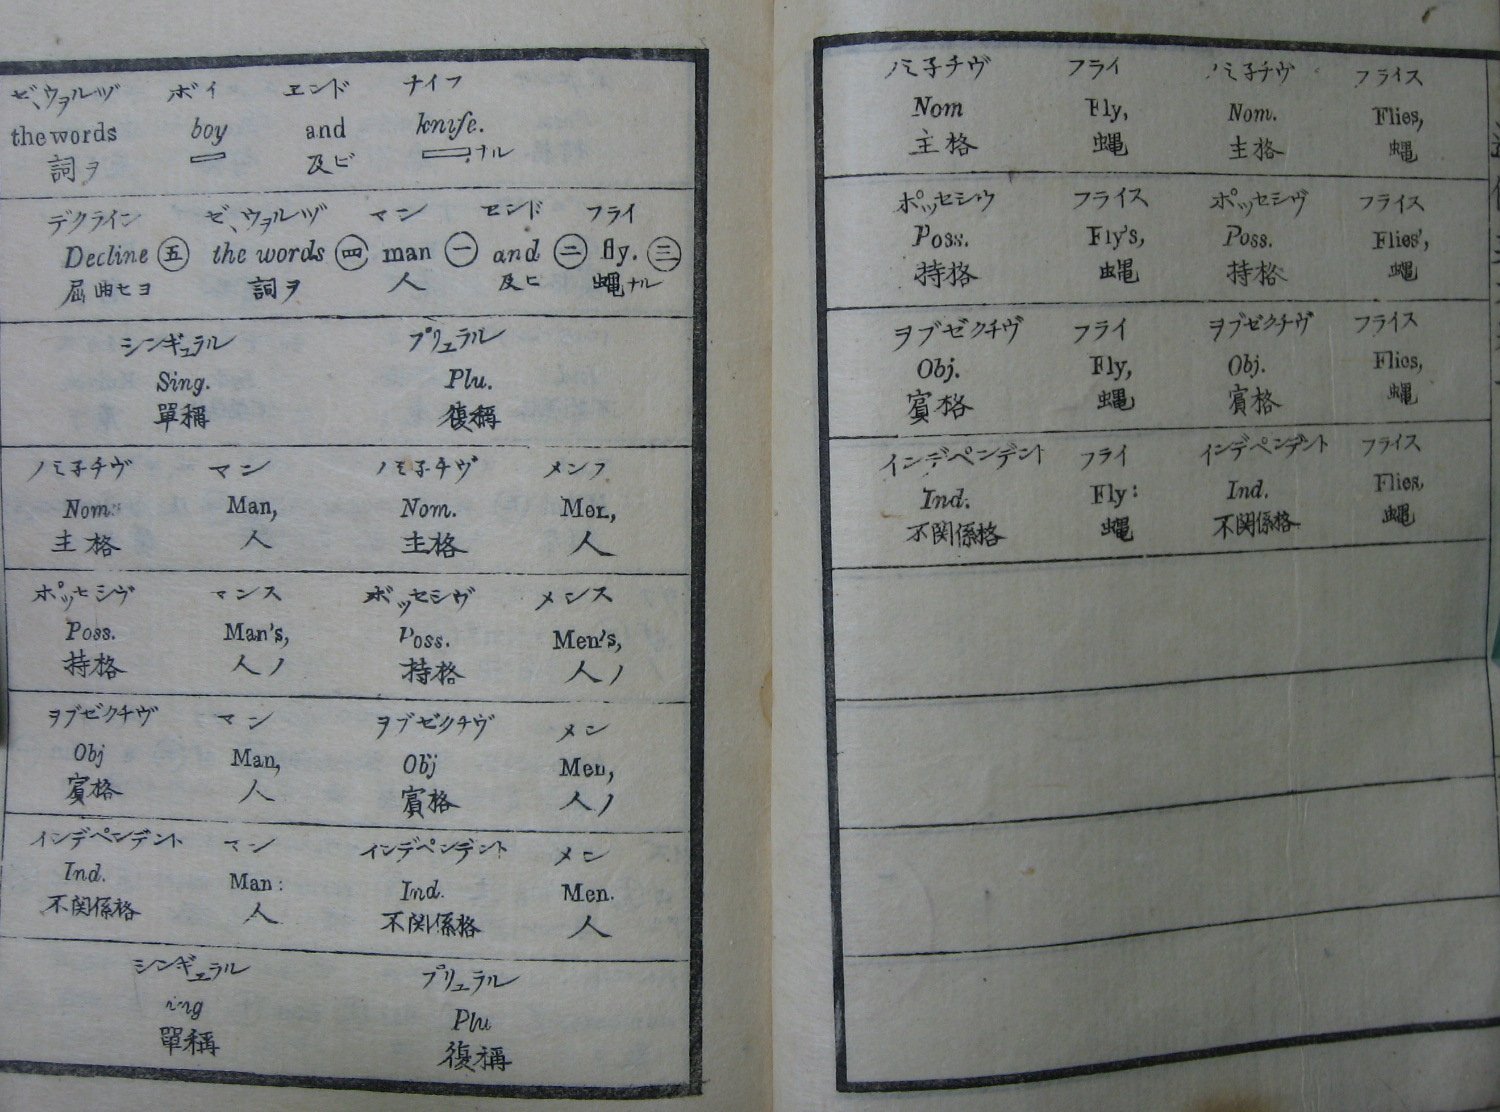 ゼ、ウヲルヅ ボイ ヱンド ナイフ
the words boy and knife.
詞ヲ 及ビ ナル
デクライン ゼ、ウヲルヅ マン ヱンド フライ
Decline 五 the words 四 man 一 and 二 fly. 三
屈曲セヨ 詞ヲ 人 及ビ 蠅ナル
シンギュラル プリュラル
Sing. Plu.
單稱 復稱
ノミ子チヴ マン ノミ子チヴ メンフ
Nom. Man, Nom. Men,
主格 人 主格 人
ポッセシヴ マンス ポッセシヴ メンス
Poss. Man's, Poss. Men's,
持格 人ノ 持格 人ノ
ヲブゼクチヴ マン ヲブゼクチヴ メン
Obj Man, Obj Men,
賓格 人 賓格 人ノ
インデペンデント マン インデペンデント メン
Ind. Man: Ind. Men.
不関係格 人 不関係格 人
シンギュラル プリュラル
ing Plu
單稱 復稱
ノミ子チヴ フライ ノミ子チヴ フライス
Nom Fly, Nom. Flies,
主格 蠅 主格 蠅
ポッセシヴ フライス ポッセシヴ フライス
Poss. Fly's, Poss. Flies',
持格 蠅 持格 蠅
ヲブゼクチヴ フライ ヲブゼクチヴ フライス
Obj. Fly, Obj. Flies,
賓格 蠅 賓格 蠅
インデペンデント フライ インデペンデント フライス
Ind. Fly: Ind. Flies,
不関係格 蠅 不関係格 蠅